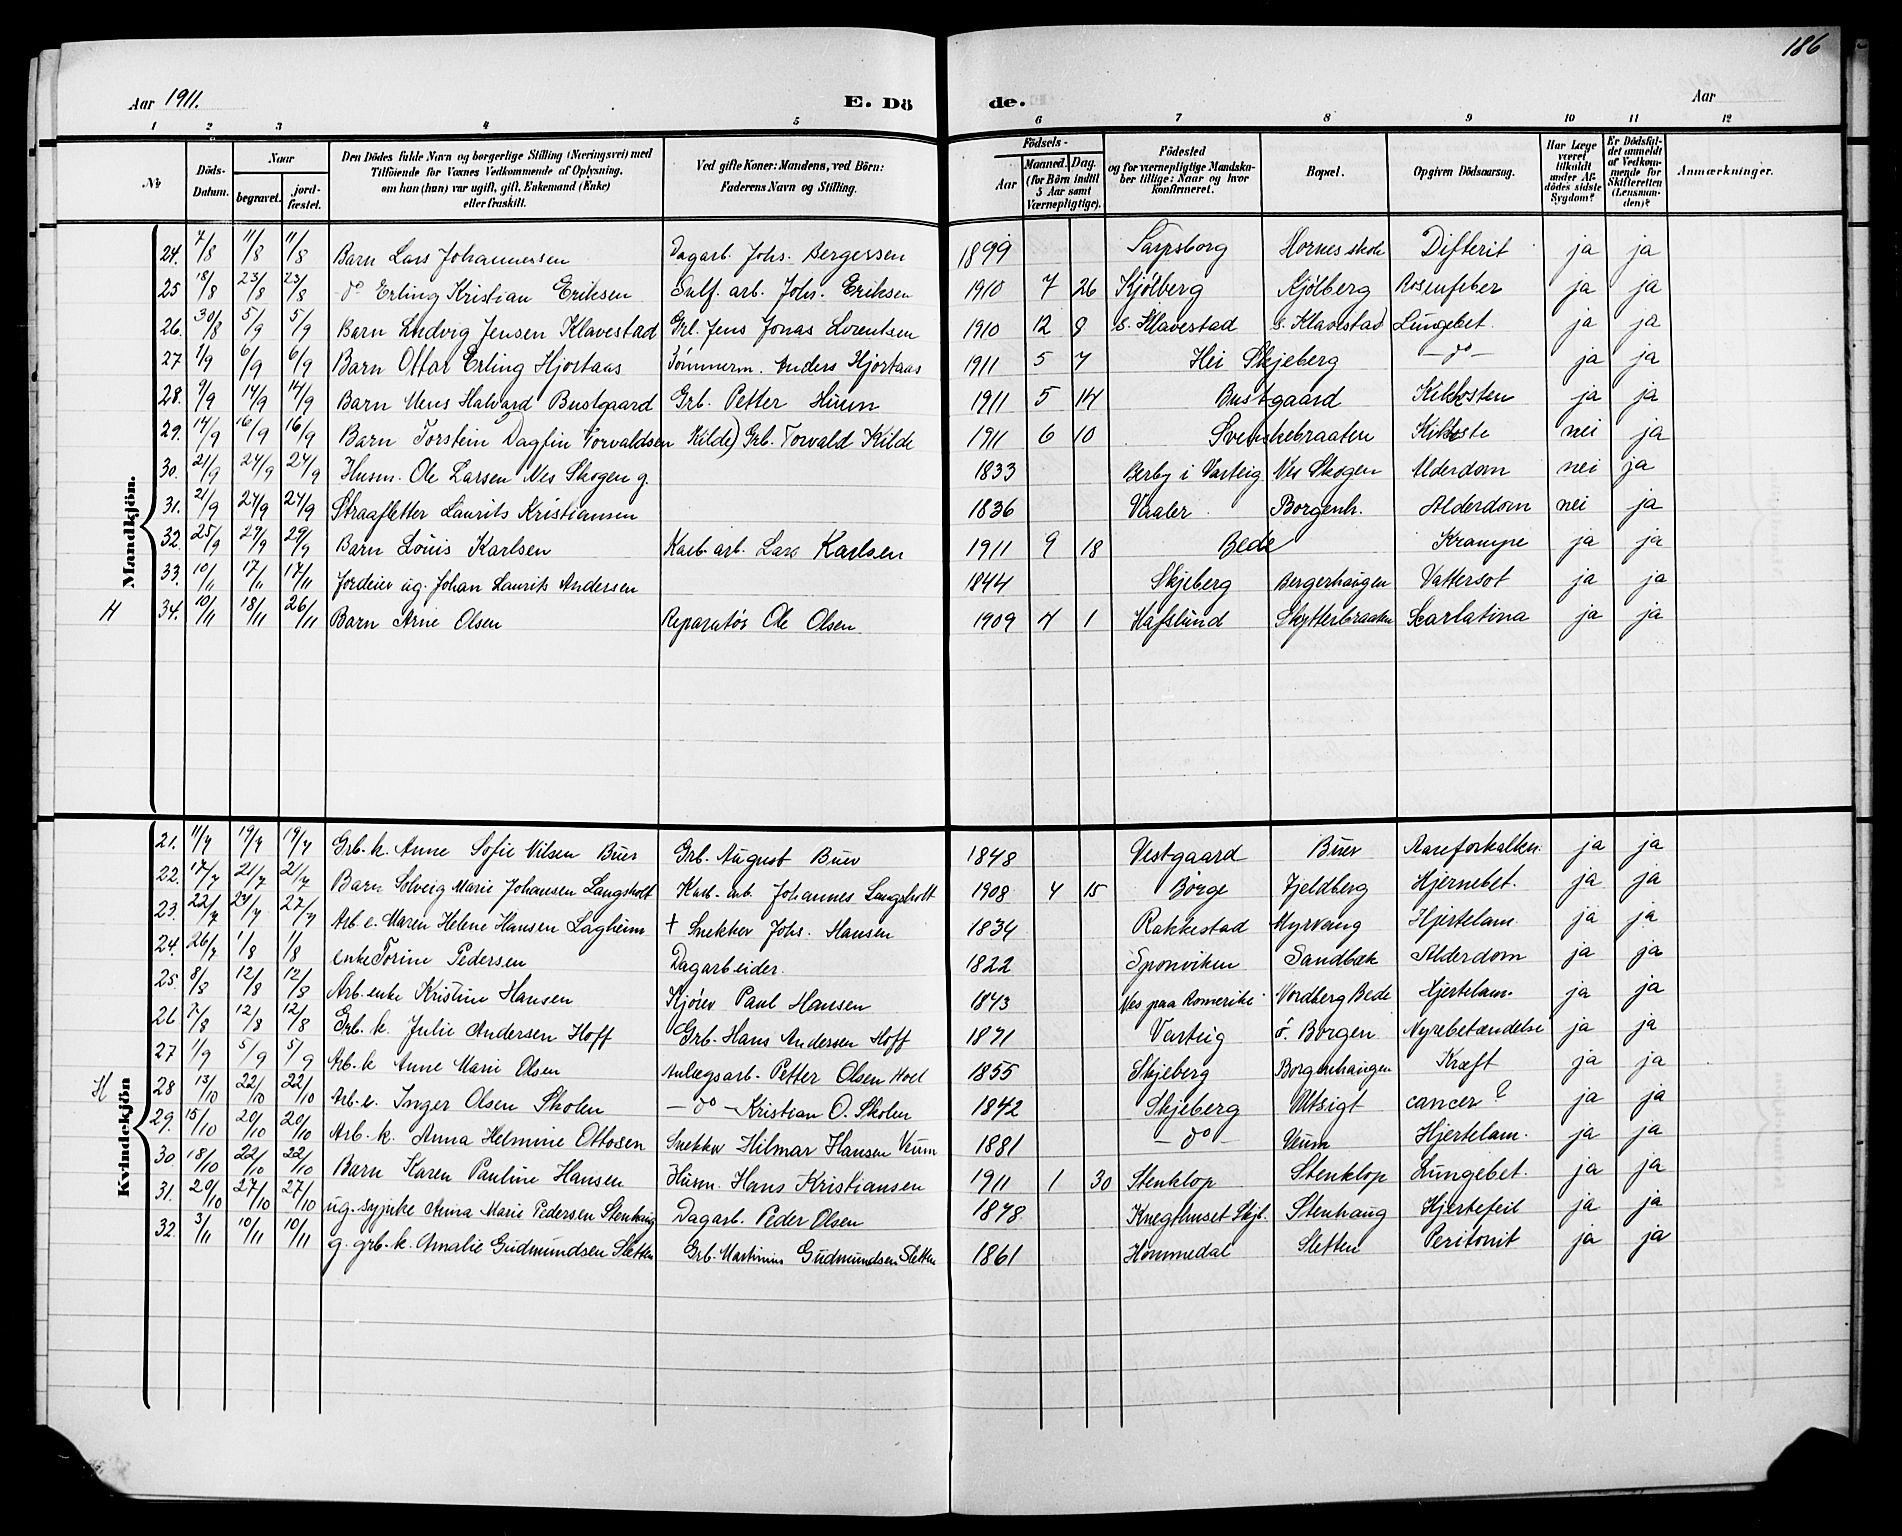 186
Aar 1911. E. Dö de. Aar
1 2 3 4 5 6 7 8 9 10 11 12
No Döds-Datum. Naar begravet. jordfæstet. Den Dödes fulde Navn og borgerlige Stilling (Næringsvei) med Tilföiende for Voxnes Vedkommende af Oplysning, om han (hun) var ugift, gift, Enkemand (Enke) eller fraskilt. Ved gifte Koner: Mandens, ved Börn: Faderens Navn og Stilling. Födsels- Aar Maaned. Dag. (for Börn indtil 5 Aar samt Værnepligtige). Födested og for værnepligtige Mandskaber tillige: Naar og hvor Konfirmeret. Bopæl. Opgiven Dödsaarsag. Har Læge været tilkaldt under Afdödes sidste Sygdom? Er Dödsfaldet anmeldt af Vedkommende for Skifteretten (Lensmanden)? Anmærkninger.
Mandkjön.
24. 7/8 11/8 11/8 Barn Lars Johannessen Dagarb. Johs. Bergersen 1899 Sarpsborg Hornes skole Difterit ja ja
25 18/8 23/8 23/8 do Erling Kristian Eriksen Sulf. arb. Johs. Eriksen 1910 7 26 Kjølberg Kjølberg Rosenfeber ja ja
26. 30/8 5/9 5/9 Barn Ludvig Jensen Klavestad Grl. Jens Jonas Lorentsen 1910 12 8 s. Klavestad s. Klavestad Lungebet. ja ja
27 1/9 6/9 6/9 Barn Ottar Erling Hjortaas Tömmerm. Anders Hjortaas 1911 5 7 Hei Skjeberg - do - ja ja
28. 9/9 14/9 14/9 Barn Mens Halvard Bustgaard Grb. Petter Huun 1911 5 14 Bustgaard Kikhosten ja ja
29. 14/9 16/9 16/9 Barn Torstein Dagfin Torvaldsen Kilde) Grb. Torvald Kilde 1911 6 10 Svenskebraaten Kikhoste nei ja
30. 21/9 24/9 24/9 Husm. Ole Larsen Nes Skogen g. 1833 Berby i Varteig Nes Skogen Alderdom nei ja
31. 21/9 27/9 27/9 Straafletter Laurits Kristiansen 1836 Vaaler. Borgenh. Alderdom nei ja
32. 25/9 29/9 29/9 Barn Louis Karlsen Karb. arb. Lars Karlsen 1911 9 18 Bede Krampe ja ja
33. 10/11 17/11 17/11 Jordeier ug. Johan Laurits Andersen 1844 Skjeberg Bergerhaugen Vattersot ja ja
H 34. 10/11 18/11 26/11 Barn Arne Olsen Reparatør Ole Olsen 1909 4 1 Hafslund Skytterbraaten Scarlatina ja ja
Kvindekjön
21. 11/7 19/7 19/7 Grb. k. Anne Sofie Nilsen Buer Grb. August Buer 1848 Vestgaard Buer Aareforkalken. ja ja
22. 17/7 21/7 21/7 Barn Solveig Marie Johansen Langsholt Karb. arb. Johannes Langsholt 1908 4 15 Børge Fjeldberg Hjernebet. ja ja
23. 22/7 27/7 27/7 Arb. e. Maren Helene Hansen Lagheim † Snekker Johs. Hansen 1834 Rakkestad Myrvang Hjertelam. ja ja
24. 26/7 1/8 1/8 enke Torine Pedersen Dagarbeider. 1822 Sponviken Sandbæk Alderdom ja ja
25. 8/8 12/8 12/8 Arb. enke Kristine Hansen Kjører Paul Hansen 1843 Nes paa Romerike Nordberg Bede Hjertelam. ja ja
26 7/8 12/8 12/8 Grb. k. Julie Andersen Hoff Grb. Hans Andersen Hoff 1871 Varteig ö. Borgen Nyrebetændelse ja ja
27 1/9 5/9 5/9 Arb. k Anne Marie Olsen Anlægsarb. Petter Olsen Hoel 1855 Skjeberg Borgenhaugen Kræft ja ja
H 28 13/10 22/10 22/10 Arb. e. Inger Olsen Skolen - do - Kristian O. Skolen 1842 Skjeberg Utsigt cancer? ja ja
29. 15/10 20/10 20/10 Arb. k. Anna Helmine Ottosen Snekker Hilmar Hansen Veum 1881 - do - Veum Hjertelam. ja ja
30 18/10 22/10 22/10 Barn Karen Pauline Hansen Husm. Hans Kristiansen 1911 1 30 Stenklop Stenklop Lungebet. ja ja
31. 20/10 27/10 27/10 ug. sypike Anna Marie Pedersen Stenhaug Dagarb. Peder Olsen 1878. Knegthuset Skjb. Stenhaug Hjertefeil ja ja
32. 3/11 10/11 10/11 g. grb. k. Amalie Gudmundsen Sletten Grb. Martinius Gudmundsen Sletten 1861 Hommedal Sletten Peritonit ja ja